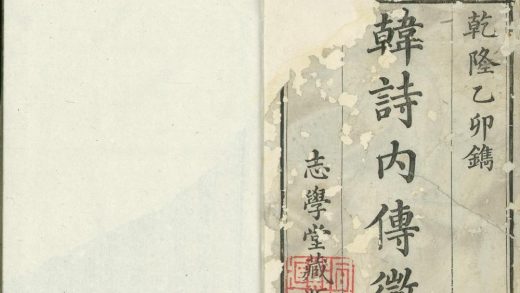 乾隆乙卯鐫
韓詩内傳徵
志學堂藏